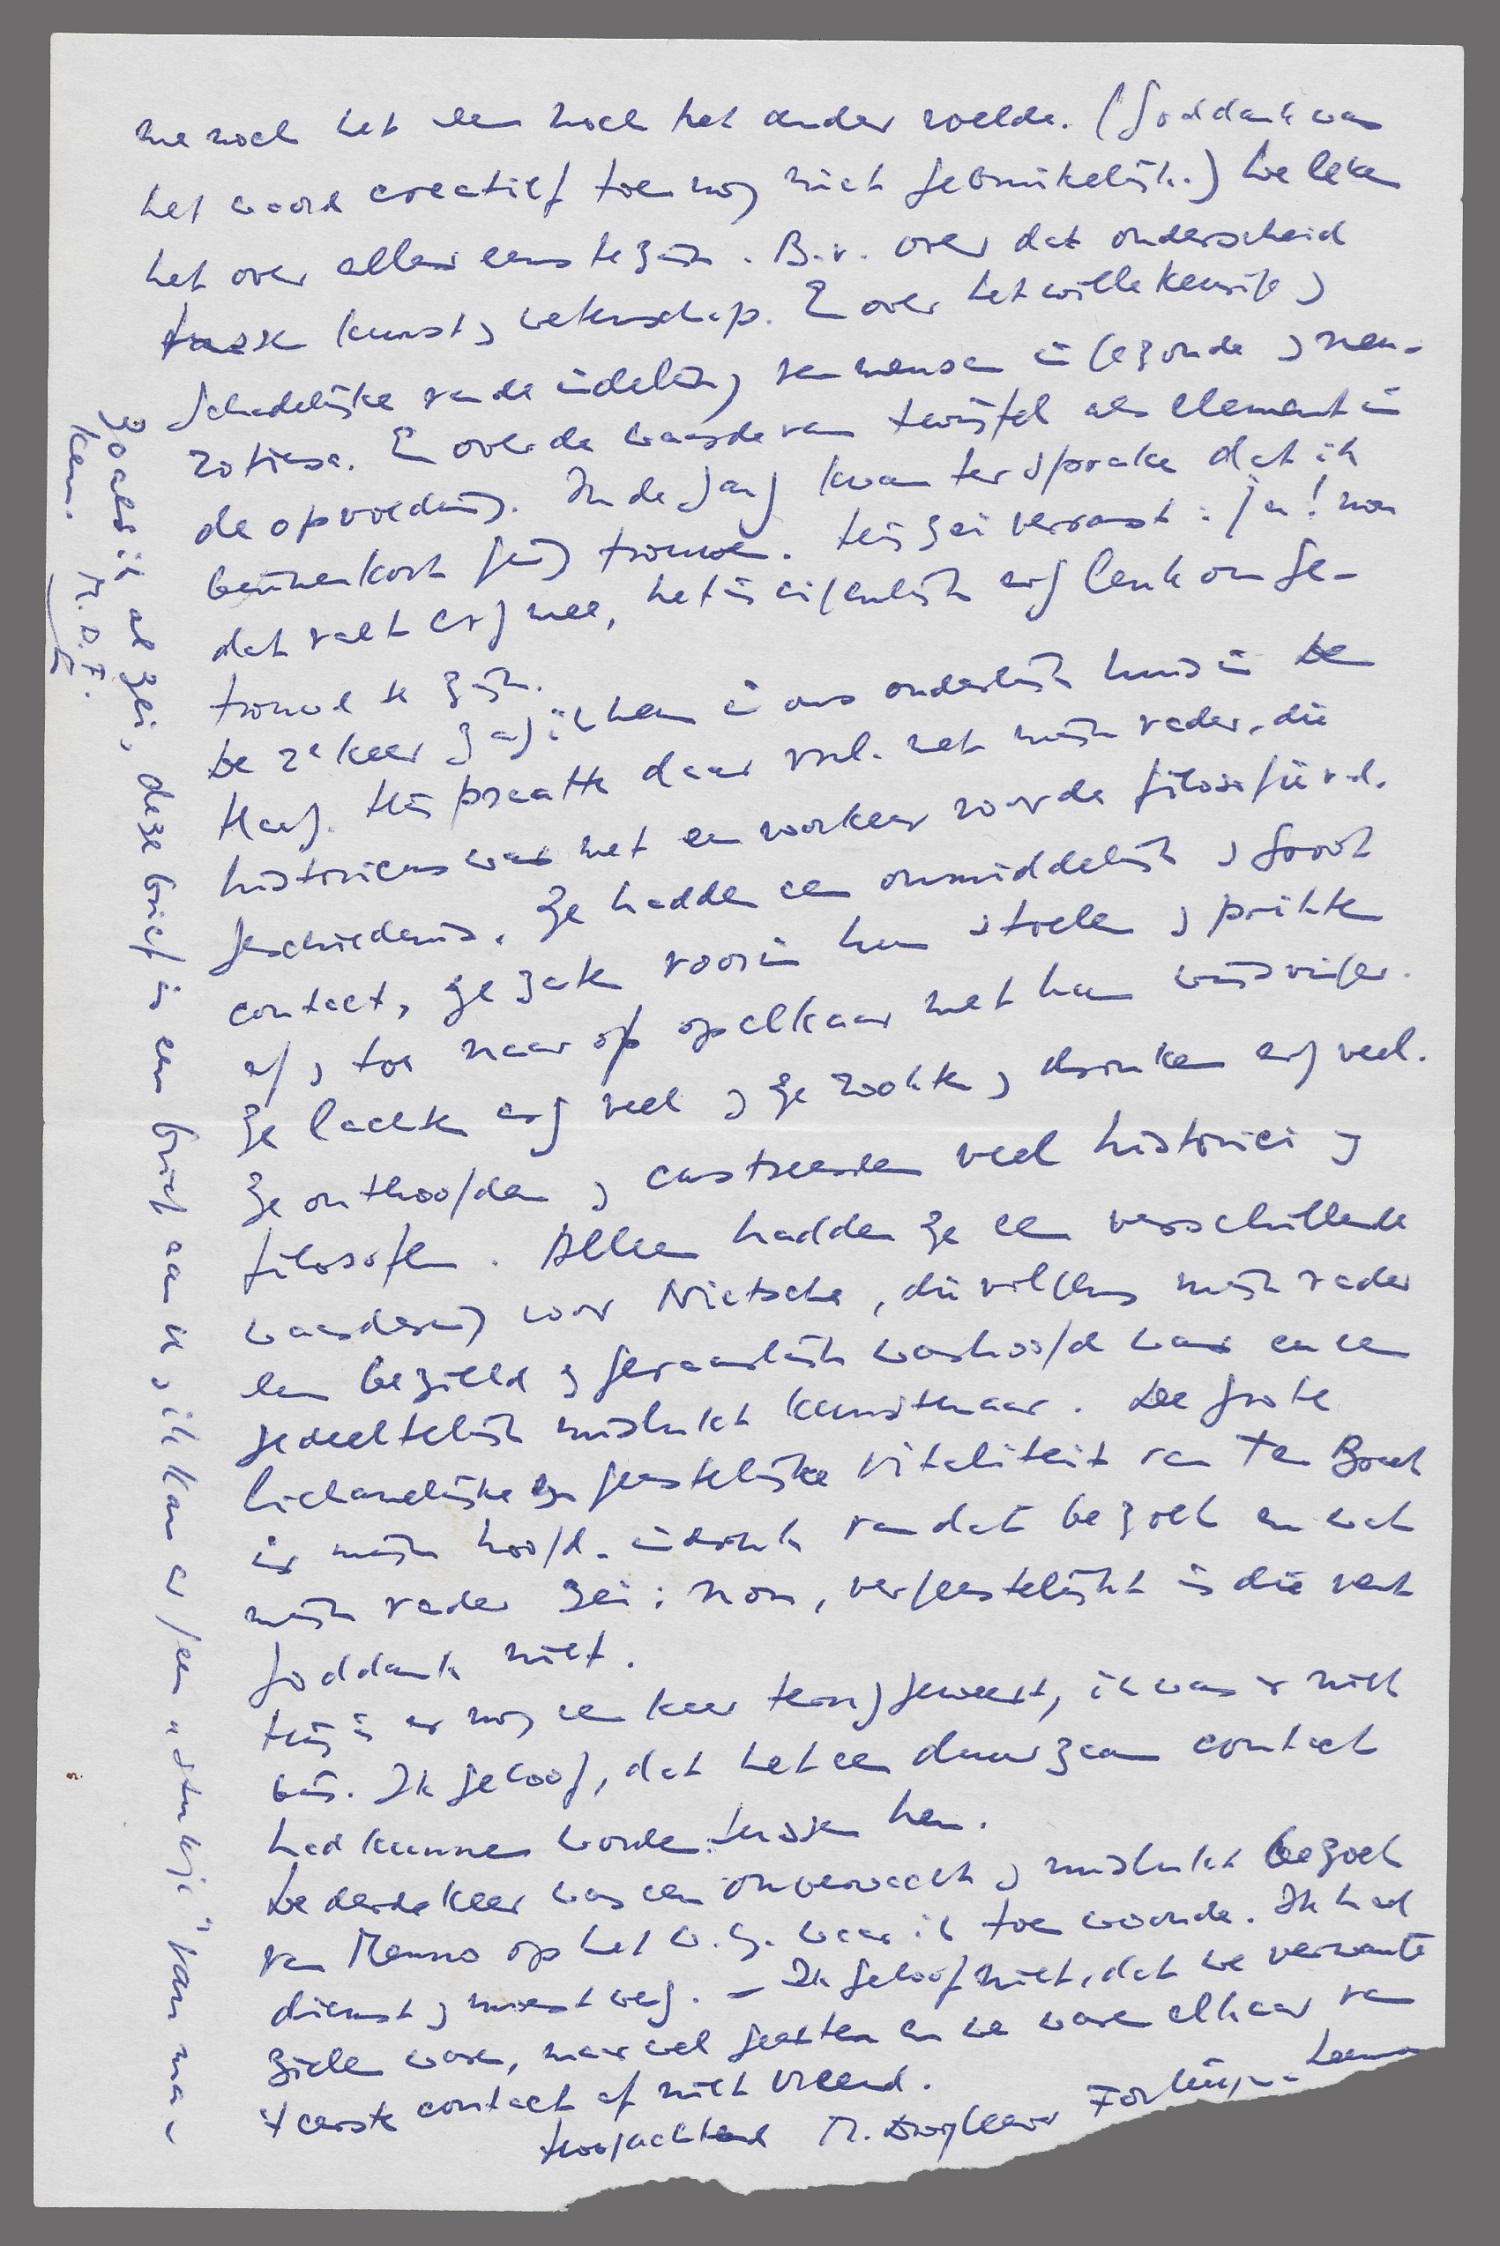 me noch het een noch het ander voelde. (Goddank was
het woord creatief toen nog niet gebruikelijk.) We leken
het over alles eens te zijn. B.v. over dat onderscheid
tussen kunst en wetenschap. En over het willekeurige en
schadelijke van de indeling van mensen in gezonde en neu-
rotiese. En over de waarde van twijfel als element in
de opvoeding. In de gang kwam ter sprake dat ik
binnenkort ging trouwen. Hij zei verrast: ja! nou
dat valt erg mee, het is eigenlijk erg leuk om ge-
trouwd te zijn.
De 2e keer zag ik hem in ons ouderlijk huis in Den
Haag. Hij praatte daar vnl. met mijn vader, die
historicus was met een voorkeur voor de filosofie v.d.
geschiedenis. Ze hadden een onmiddellijk en groot
contact, ze zaten voorin hun stoelen en prikten
af en toe naar op opelkaar met hun wijsvinger.
Ze lachten erg veel en ze rookten en dronken erg veel.
Ze onthoofden en castreerden veel historici en
filosofen. Alleen hadden ze een verschillende
waardering voor Nietsche, die volgens mijn vader
een bezield en gevaarlijk warhoofd was en een
gedeeltelijk mislukt kunstenaar. De grote
lichamelijke en geestelijke vitaliteit van Ter Braak
is mijn hoofd-indruk van dat bezoek en wat
mijn vader zei: nou, vergeestelijkt is die vent
goddank niet.
Hij is er nog een keer terug geweest, ik was er niet
bij. Ik geloof, dat het een duurzaam contact
had kunnen worden tussen hen.
De derde keer was een onverwacht en mislukt bezoek
van Menno op het W.G. waar ik toen woonde. Ik had
dienst en moest weg. – Ik geloof niet, dat we verwante
zielen waren, maar wel geesten en we waren elkaar van
't eerste contact af niet vreemd.
Hoogachtend M. Droogleever Fortuyn-Leenm
Zoals ik al zei, deze brief is een brief aan u, ik kan er geen "stukje" van ma-
ken. M.D.F.